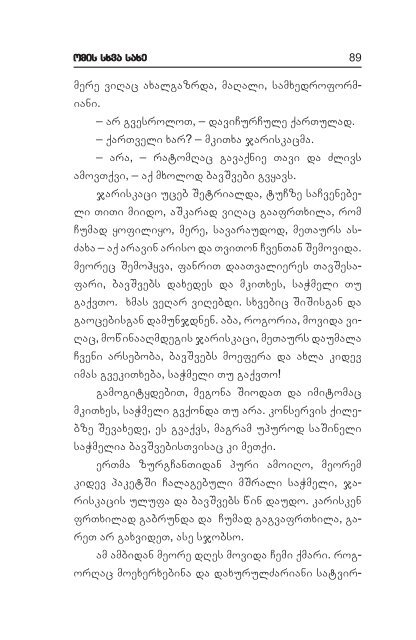 ომის სხვა სახე 89
მერე ვიღაც ახალგაზრდა, მაღალი, სამხედროფორმ-
იანი.
– არ გვესროლოთ, – დავიჩურჩულე ქართულად.
– ქართველი ხარ? – მკითხა ჯარისკაცმა.
– არა, – რატომღაც გავაქნიე თავი და ძლივს
ამოვთქვი, – აქ მხოლოდ ბავშვები გვყავს.
ჯარისკაცი უცებ შეტრიალდა, ტუჩზე საჩვენებე-
ლი თითი მიიდო, აშკარად ვიღაც გააფრთხილა, რომ
ჩუმად ყოფილიყო, მერე, სავარაუდოდ, მეთაურს ას-
ძახა – აქ არავინ არისო და თვითონ ჩვენთან შემოვიდა.
მეორეც შემოჰყვა, ფანრით დაათვალიერეს თავშესა-
ფარი, ბავშვებს დახედეს და მკითხეს, საჭმელი თუ
გაქვთო. ხმას ვეღარ ვიღებდი. სხვებიც შიშისგან და
გაოცებისგან დამუნჯდნენ. აბა, როგორია, მოვიდა ვი-
ღაც, მოწინააღმდეგის ჯარისკაცი, მეთაურს დაუმალა
ჩვენი არსებობა, ბავშვებს მოეფერა და ახლა კიდევ
იმას გვეკითხება, საჭმელი თუ გაქვთო!
გამოგიტყდებით, მეგონა შიოდათ და იმიტომაც
მკითხეს, საჭმელი გვქონდა თუ არა. კონსერვის ქილე-
ბზე შევახედე, ეს გვაქვს, მაგრამ უპუროდ საშინელი
საჭმელია ბავშვებისთვისაც კი მეთქი.
ერთმა ზურგჩანთიდან პური ამოიღო, მეორემ
კიდევ პაკეტში ჩალაგებული მშრალი საჭმელი, ჯა-
რისკაცის ულუფა და ბავშვებს წინ დაუდო. კარისკენ
ფრთხილად გაბრუნდა და ჩუმად გაგვაფრთხილა, გა-
რეთ არ გახვიდეთ, ასე სჯობსო.
ამ ამბიდან მეორე დღეს მოვიდა ჩემი ქმარი. როგ-
ორღაც მოეხერხებინა და დახურულძარიანი სატვირ-